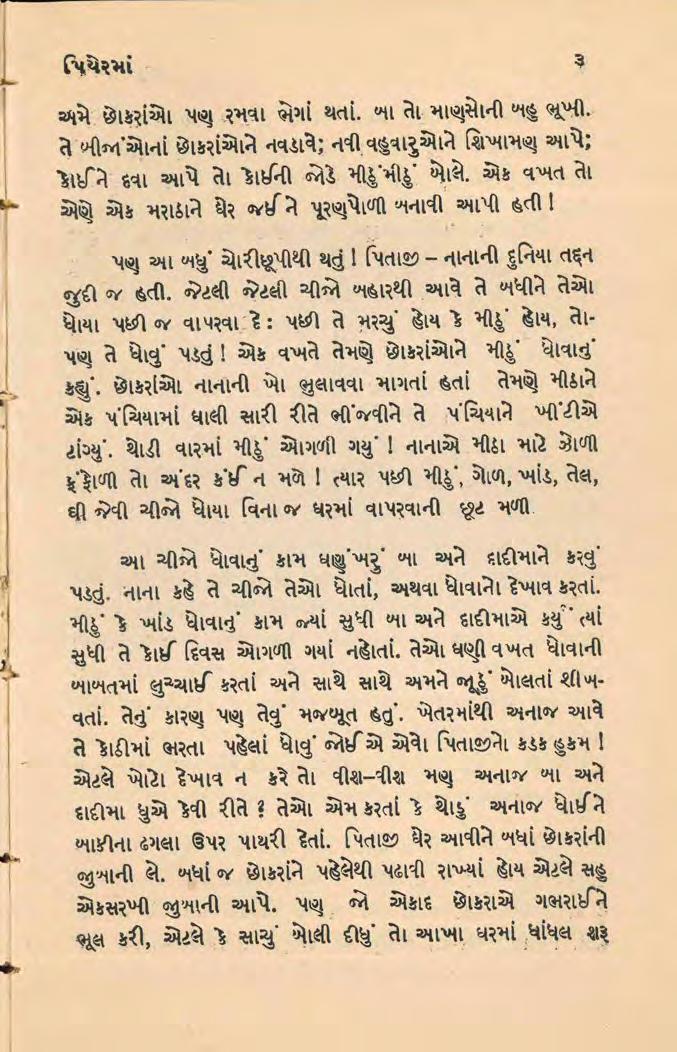 પિયેરમાં ૩
અમે છોકરાંઓ પણ રમવા ભેગાં થતાં. બા તો માણસોની બહુ ભૂખી.
તે બીજાંઓનાં છોકરાંઓને નવડાવે; નવી વહુવારુઓને શિખામણ આપે;
કોઈને દવા આપે તો કોઈની જોડે મીઠુંમીઠું બોલે. એક વખત તો
એણે એક મરાઠાને ઘેર જઈ ને પૂરણપોળી બનાવી આપી હતી !
પણ આ બધું ચોરીછૂપીથી થતું ! પિતાજી – નાનાની દુનિયા તદ્દન
જુદી જ હતી. જેટલી જેટલી ચીજો બહારથી આવે તે બધીને તેઓ
ધોયા પછી જ વાપરવા દે : પછી તે મરચું હોય કે મીઠું હોય, તો-
પણ તે ધોવું પડતું ! એક વખતે તેમણે છોકરાંઓને મીઠું ધોવાનું
કહ્યું. છોકરાંઓ નાનાની ખો ભુલાવવા માગતાં હતાં તેમણે મીઠાને
એક પંચિયામાં ઘાલી સારી રીતે ભીંજવીને તે પંચિયાને ખીંટીએ
ટાંગ્યું. થોડી વારમાં મીઠું ઓગળી ગયું ! નાનાએ મીઠા માટે ઝોળી
ફંફોળી તો અંદર કંઈ ન મળે ! ત્યાર પછી મીઠું, ગોળ, ખાંડ, તેલ,
ઘી જેવી ચીજો ધોયા વિના જ ઘરમાં વાપરવાની છૂટ મળી
આ ચીજો ધોવાનું કામ ઘણુંખરું બા અને દાદીમાને કરવું
પડતું. નાના કહે તે ચીજો તેઓ ધોતાં, અથવા ધોવાનો દેખાવ કરતાં.
મીઠું કે ખાંડ ધોવાનું કામ જ્યાં સુધી બા અને દાદીમાએ કર્યું ત્યાં
સુધી તે કોઈ દિવસ ઓગળી ગયાં નહોતાં. તેઓ ઘણી વખત ધોવાની
બાબતમાં લુચ્ચાઈ કરતાં અને સાથે સાથે અમને જૂઠું બોલતાં શીખ-
વતાં. તેનું કારણ પણ તેવું મજબૂત હતું. ખેતરમાંથી અનાજ આવે
તે કોઠીમાં ભરતા પહેલાં ધોવું જોઈએ એવો પિતાજીનો કડક હુકમ !
એટલે ખોટો દેખાવ ન કરે તો વીશ–વીશ મણ અનાજ બા અને
દાદીમા ધુએ કેવી રીતે ? તેઓ એમ કરતાં કે થોડું અનાજ ધોઈને
બાકીના ઢગલા ઉપર પાથરી દેતાં. પિતાજી ઘેર આવીને બધાં છોકરાંની
જુબાની લે. બધાં જ છોકરાંને પહેલેથી પઢાવી રાખ્યાં હોય એટલે સહુ
એકસરખી જુબાની આપે. પણ જો એકાદ છોકરાએ ગભરાઈને
ભૂલ કરી, એટલે કે સાચું બોલી દીધું તો આખા ઘરમાં ધાંધલ શરૂ